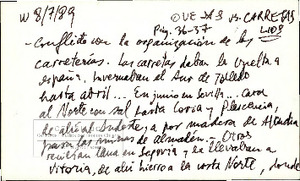 W 8/7/89
OVEJAS vs. CARRETAS
Pág. 36-37
LIOS
- Conflicto con la organización de las
carreterías. Las carretas daban la vuelta a
españa. Invernaban el Sur de Toledo
hasta abril... En junio en Sevilla... 
al Norte con sal hasta Coria y Plasencia,
de allí al Sudeste, a por madera de 
para las minas de Almadén. - Otros
lana en Segovia y la llevaban a
Vitoria, de allí hierro a la costa Norte, donde